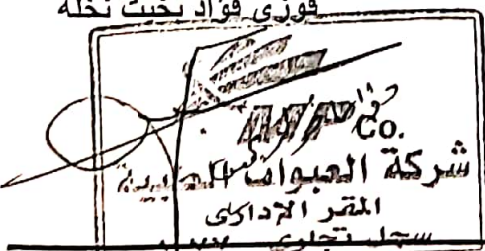 فوزى فؤاد بخيت نخله
Co.
شركة العبوات الطبية
المقر الإدارى
سجل تجارى